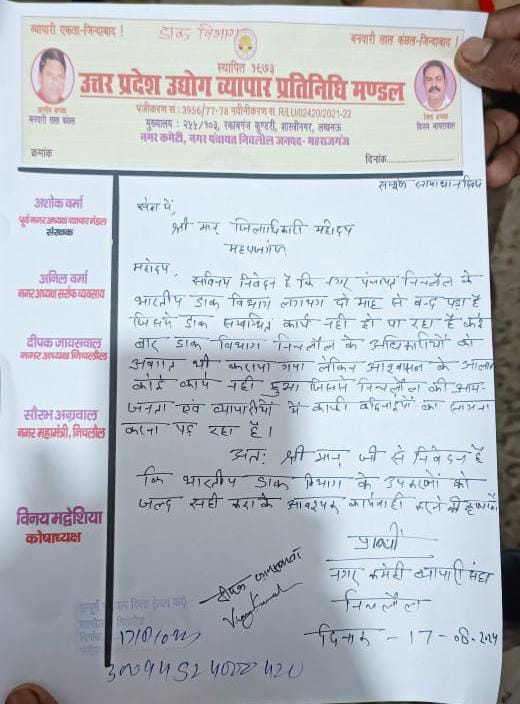 व्यापारी एकता-जिन्दाबाद !
डाक विभाग
बनवारी लाल कंछल-जिन्दाबाद !
स्थापित १९७३
उत्तर प्रदेश उद्योग व्यापार प्रतिनिधि मण्डल
पंजीकरण सं.: 3956/77-78 नवीनीकरण सं. R/LU/02420/2021-22
मुख्यालय : २५५/१०३, रकाबगंज कुण्डरी, शास्त्रीनगर, लखनऊ
नगर कमेटी, नगर पंचायत निचलौल जनपद- महराजगंज
बनवारी लाल कंछल
विजय जायसवाल
क्रमांक
दिनांक
सम्पूर्ण समाधान दिवस
अशोक वर्मा
पूर्व नगर अध्यक्ष व्यापार मंडल
संरक्षक
अनिल वर्मा
नगर अध्यक्ष सर्राफ व्यवसाय
दीपक जायसवाल
नगर अध्यक्ष निचलौल
सौरभ अग्रवाल
नगर महामंत्री, निचलौल
विनय मद्धेशिया
कोषाध्यक्ष
सेवा में,
श्री मान् जिलाधिकारी महोदय
महराजगंज
महोदय,
सविनय निवेदन है कि नगर पंचायत निचलौल के
भारतीय डाक विभाग लगभग दो माह से बन्द पड़ा है
जिससे डाक सम्बन्धित कार्य नही हो पा रहा है कई
बार डाक विभाग निचलौल के अधिकारियों को
अवगत भी कराया गया लेकिन आश्वासन के अलावा
कोई कार्य नही हुआ जिससे निचलौल की आम-
जनता एवं व्यापारियों में काफी कठिनाईयों का सामना
करना पड़ रहा है।
अतः श्री मान् जी से निवेदन है
कि भारतीय डाक विभाग के उपकरणों को
जल्द सही कराके आवश्यक कार्यवाही करने की कृपा करें
प्रार्थी
नगर कमेटी व्यापारी संघ
निचलौल
दिनांक - 17-08-2024
दीपक जायसवाल